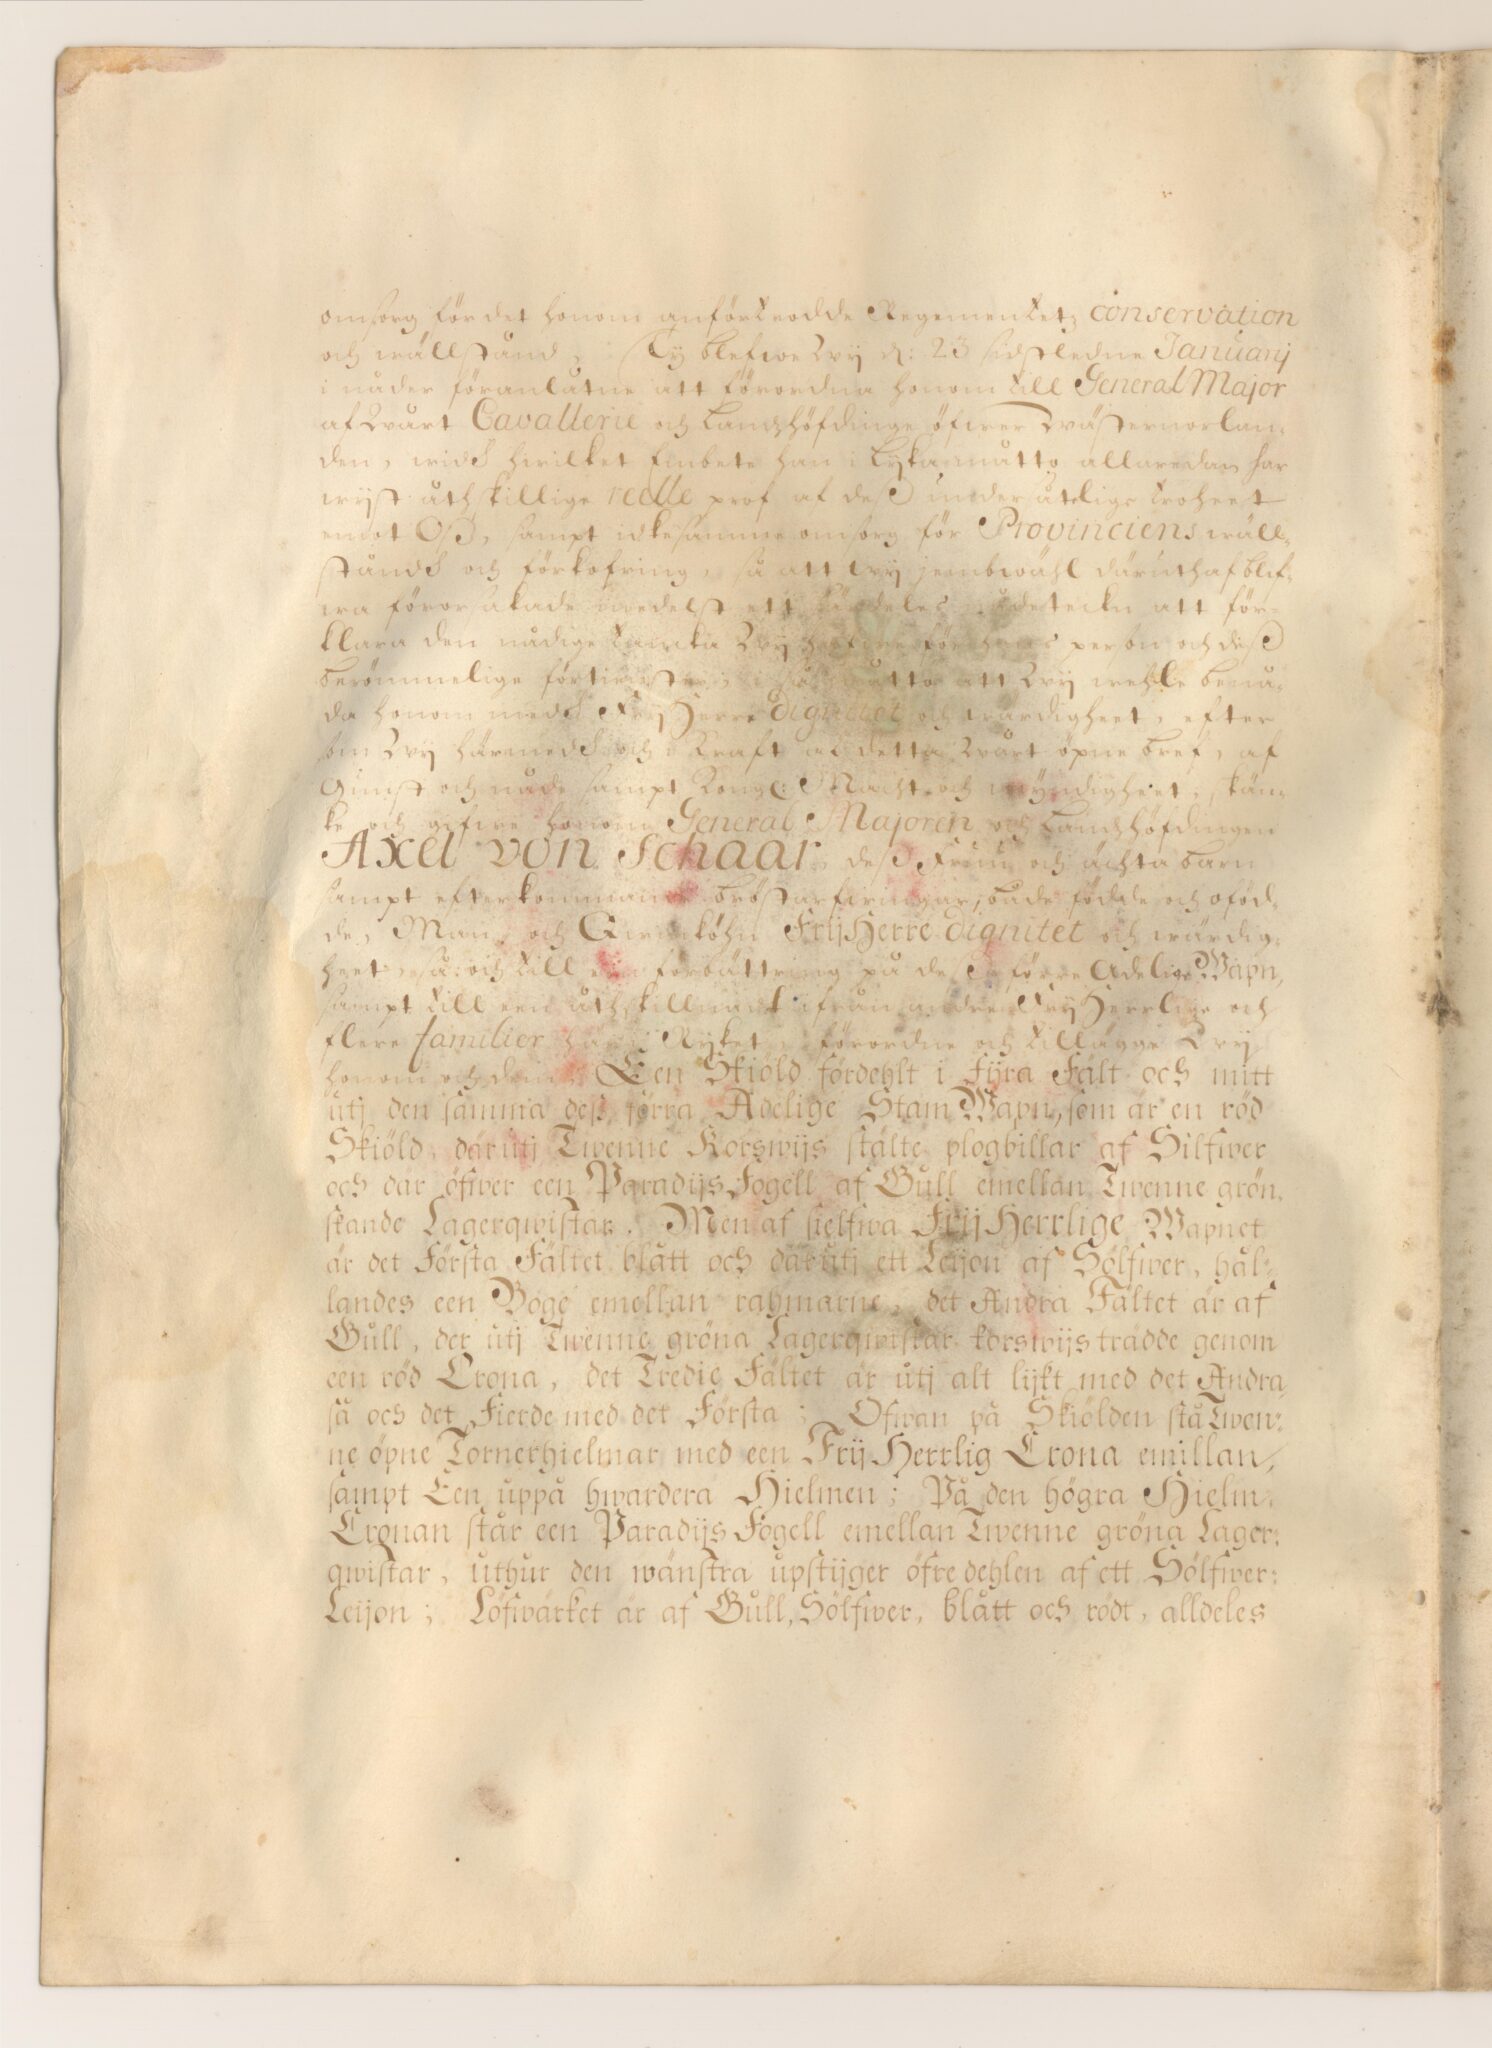 omsorg för det honom anförtrodde Regementetz conservation
och wällstånd, Ty blefwe Wij d: 23 sidstledne Januarij
i nåder föranlåtne att förordna honom till General Major
af Wårt Cavallerie och Landzhöfdinge öfwer Wästernorlan-
den, widh hwilket Embete han i lijka måtto allaredan har
wijst åthskillige reelle prof af deß undersåtelige troheet
emot Oß, sampt idkesamme omsorg för Provinciens wäll-
ståndh och förkofring, så att Wij jembwähl däruthaf blif-
wa förorsakade medelst ett särdeles nådetekn att för-
klara den nådige tancka Wij hafwe för hans person och deß
berömmelige förtienster, i så måtto att Wij wehle benå-
da honom medh FrijHerre dignitet och wärdigheet, efter
som Wij härmedh och i Kraft af detta Wårt öpne bref, af
Gunst och nåde sampt Kongl: Macht och myndigheet, skän-
ke och gifwe honom General Majoren och Landzhöfdingen
Axel von Schaar, deß Fruu och ächta barn
sampt efterkommande bröstarfwingar, både födde och oföd-
de, Man- och Qwinköhn FrijHerre dignitet och wärdig-
heet, så och till een förbättring på deß förre Adelige Wapn,
sampt till een åthskillnadt ifrån andre FrijHerrlige och
flere familier här i Rijket, förordne och tillägge Wij
honom och dem, Een Skiöld fördehlt i Fijra Fält och mitt
utj den samma deß förra Adelige StamWapn, som är en röd
Skiöld, därutj Twenne Korswijs stälte plogbillar af Silfwer
och där öfwer een ParadijsFogell af Gull emellan Twenne grön-
skande Lagerqwistar. Men af sielfwa FrijHerrlige Wapnet
är det Första Fältet blått och därutj ett Leijon af Sölfwer, hål-
landes een Boge emellan rahmarne, det Andra Fältet är af
Gull, der utj Twenne gröna Lagerqwistar korswijs trädde genom
een röd Crona, det Tredie Fältet är utj alt lijkt med det Andra,
så och det Fierde med det Första; Ofwan på Skiölden stå Twen-
ne öpne Tornerhielmar med een FrijHerrlig Crona emillan,
sampt Een uppå hwardera Hielmen; På den högra Hielm-
Cronan står een ParadijsFogell emellan Twenne gröna Lager-
qwistar, uthur den wänstra upstijger öfre dehlen af ett Sölfwer-
Leijon; Löfwärket är af Gull, Sölfwer, blått och rödt, alldeles